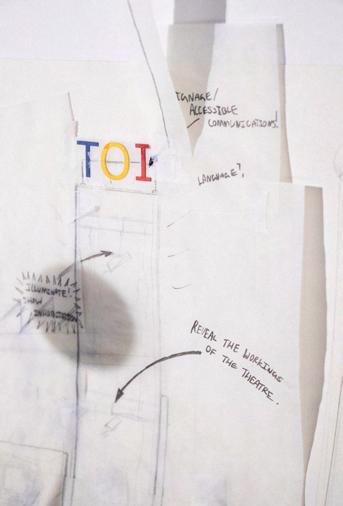 SIGNAGE/
ACCESSIBLE
COMMUNICATIONS!
TOI
LANGUAGE?,
ILLUMINATE!
SHOW
INHABITATION
REVEAL THE WORKINGS
OF THE THEATRE.